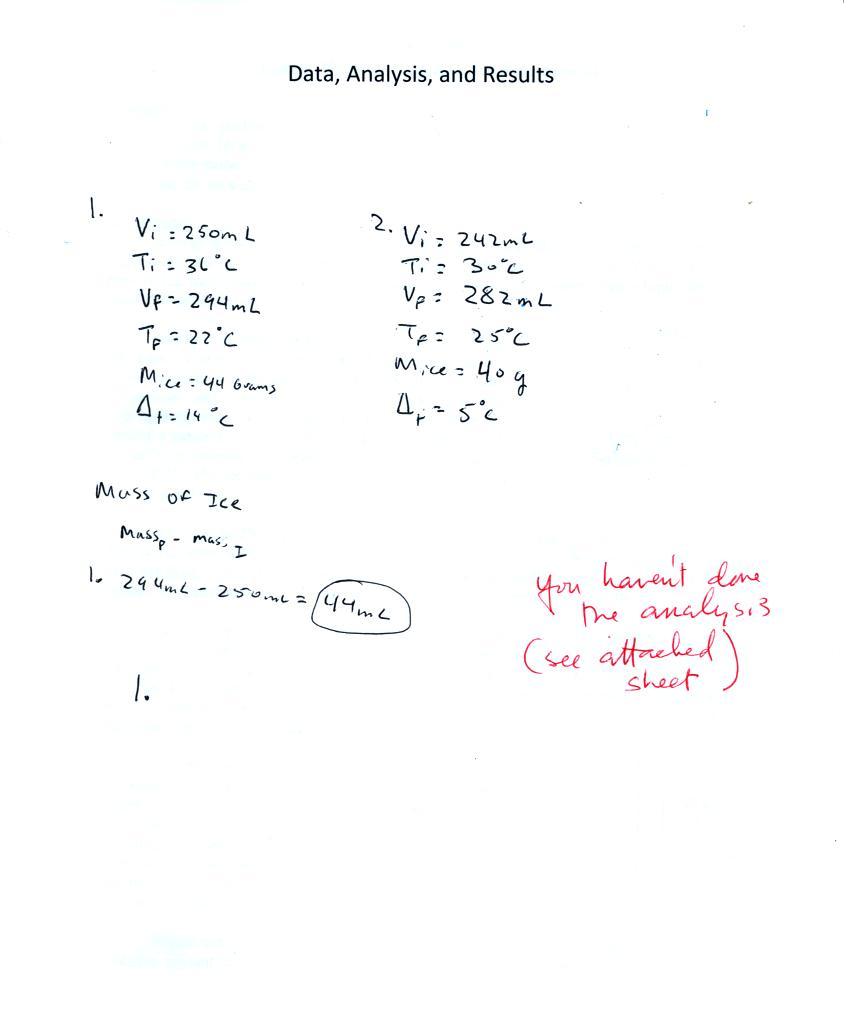 Data, Analysis, and Results
1.
Vi = 250mL
Ti = 36°C
Vf = 294mL
Tf = 22°C
Mice = 44 Grams
Δt = 14°C
2.
Vi = 242mL
Ti = 30°C
Vf = 282mL
Tf = 25°C
Mice = 40g
Δt = 5°C
Mass of Ice
Massf - mass I
1. 294mL - 250mL = 44mL
1.
you haven't done
the analysis
(see attached
sheet)